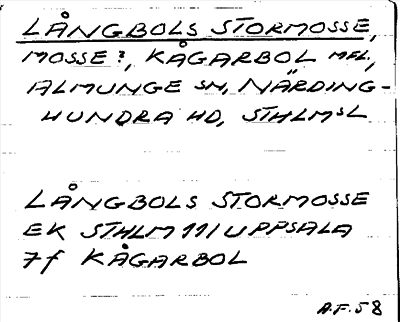 LÅNGBOLS STORMOSSE,
MOSSE?, KÅGARBOL MFL,
ALMUNGE SN, NÄRDING-
HUNDRA HD, STHLMSL
LÅNGBOLS STORMOSSE
EK STHLM 111 UPPSALA
7f KÅGARBOL
A.F. 58